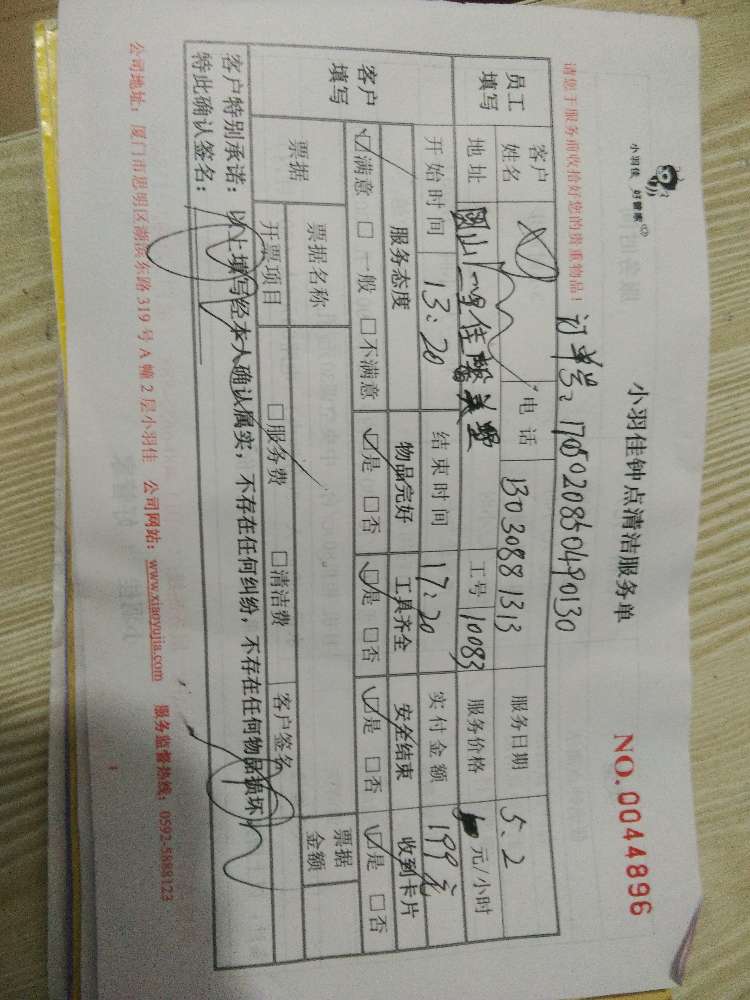 小羽佳 好管家
小羽佳钟点清洁服务单
NO.0044896
请您于服务前收拾好您的贵重物品!
订单号:1705020850490130
员工填写 客户姓名 电话 13030881313 服务日期 5.2
地址 工号 10083 服务价格 元/小时
开始时间 13:20 结束时间 17:20 实付金额 199元
客户填写 服务态度 物品完好 工具齐全 安全结束 收到卡片
☑满意 □一般 □不满意 ☑是 □否 ☑是 □否 ☑是 □否 ☑是 □否
票据 票据名称 票据金额
开票项目 □服务费 □清洁费 客户签名
客户特别承诺:以上填写经本人确认属实,不存在任何纠纷,不存在任何物品损坏
特此确认签名:
公司地址:厦门市思明区湖滨东路319号A幢2层小羽佳 公司网站:www.xiaoyujia.com 服务监督热线:0592-5888123